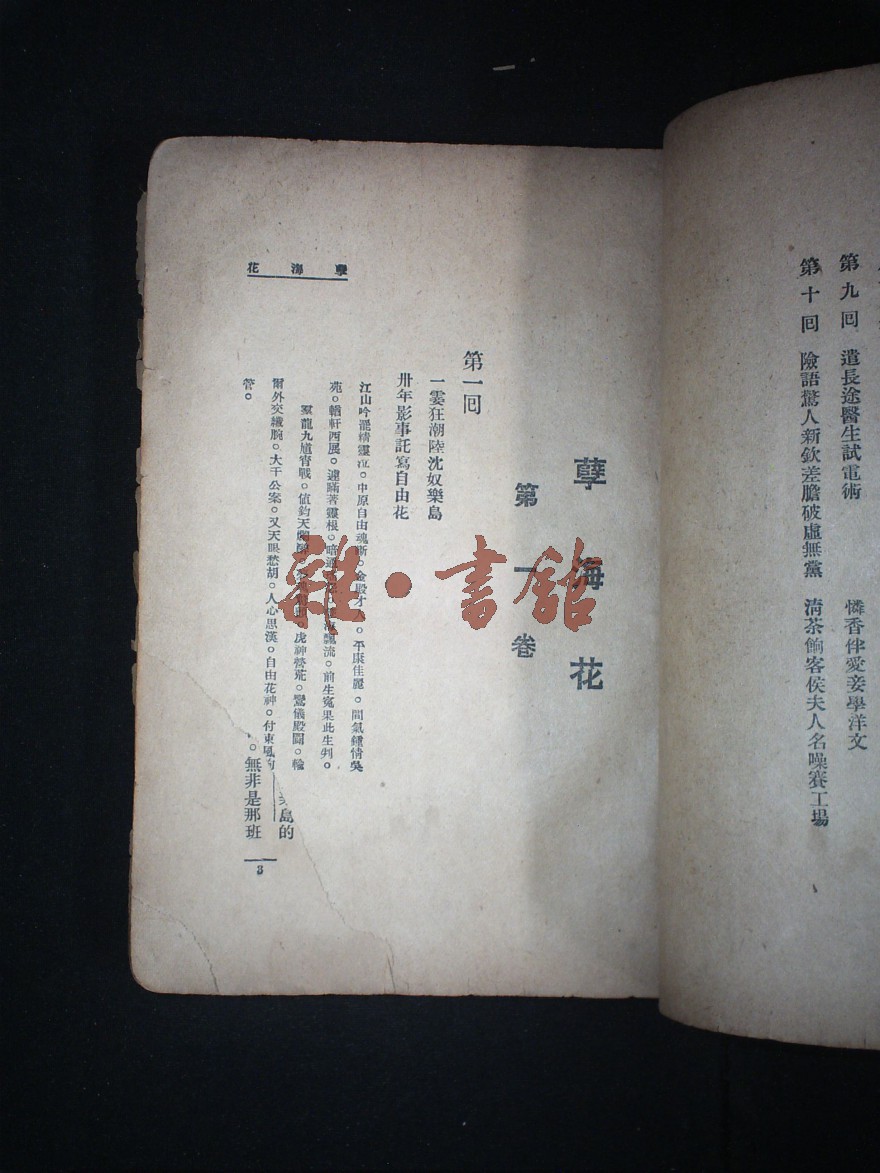 第九回　遣長途醫生試電術　憐香伴愛妾學洋文
第十回　險語驚人新欽差膽破虛無黨　清茶餉客侯夫人名噪賽工場
孽海花
第一卷
第一回
一霎狂潮陸沈奴樂島
卅年影事託寫自由花
江山吟罷精靈泣。中原自由魂斷。金殿才人。平康佳麗。間氣鍾情吳
苑。輶軒西展。遽瞞著靈根。暗通飄流。前生冤果此生判。
羣龍九馗宵戰。值鈞天虎神營荒。鸞儀殿闢。輸
爾外交纖腕。大千公案。又天眼愁胡。人心思漢。自由花神。付東風
管。
島的
。無非是那班
孽海花
3
雜·書館